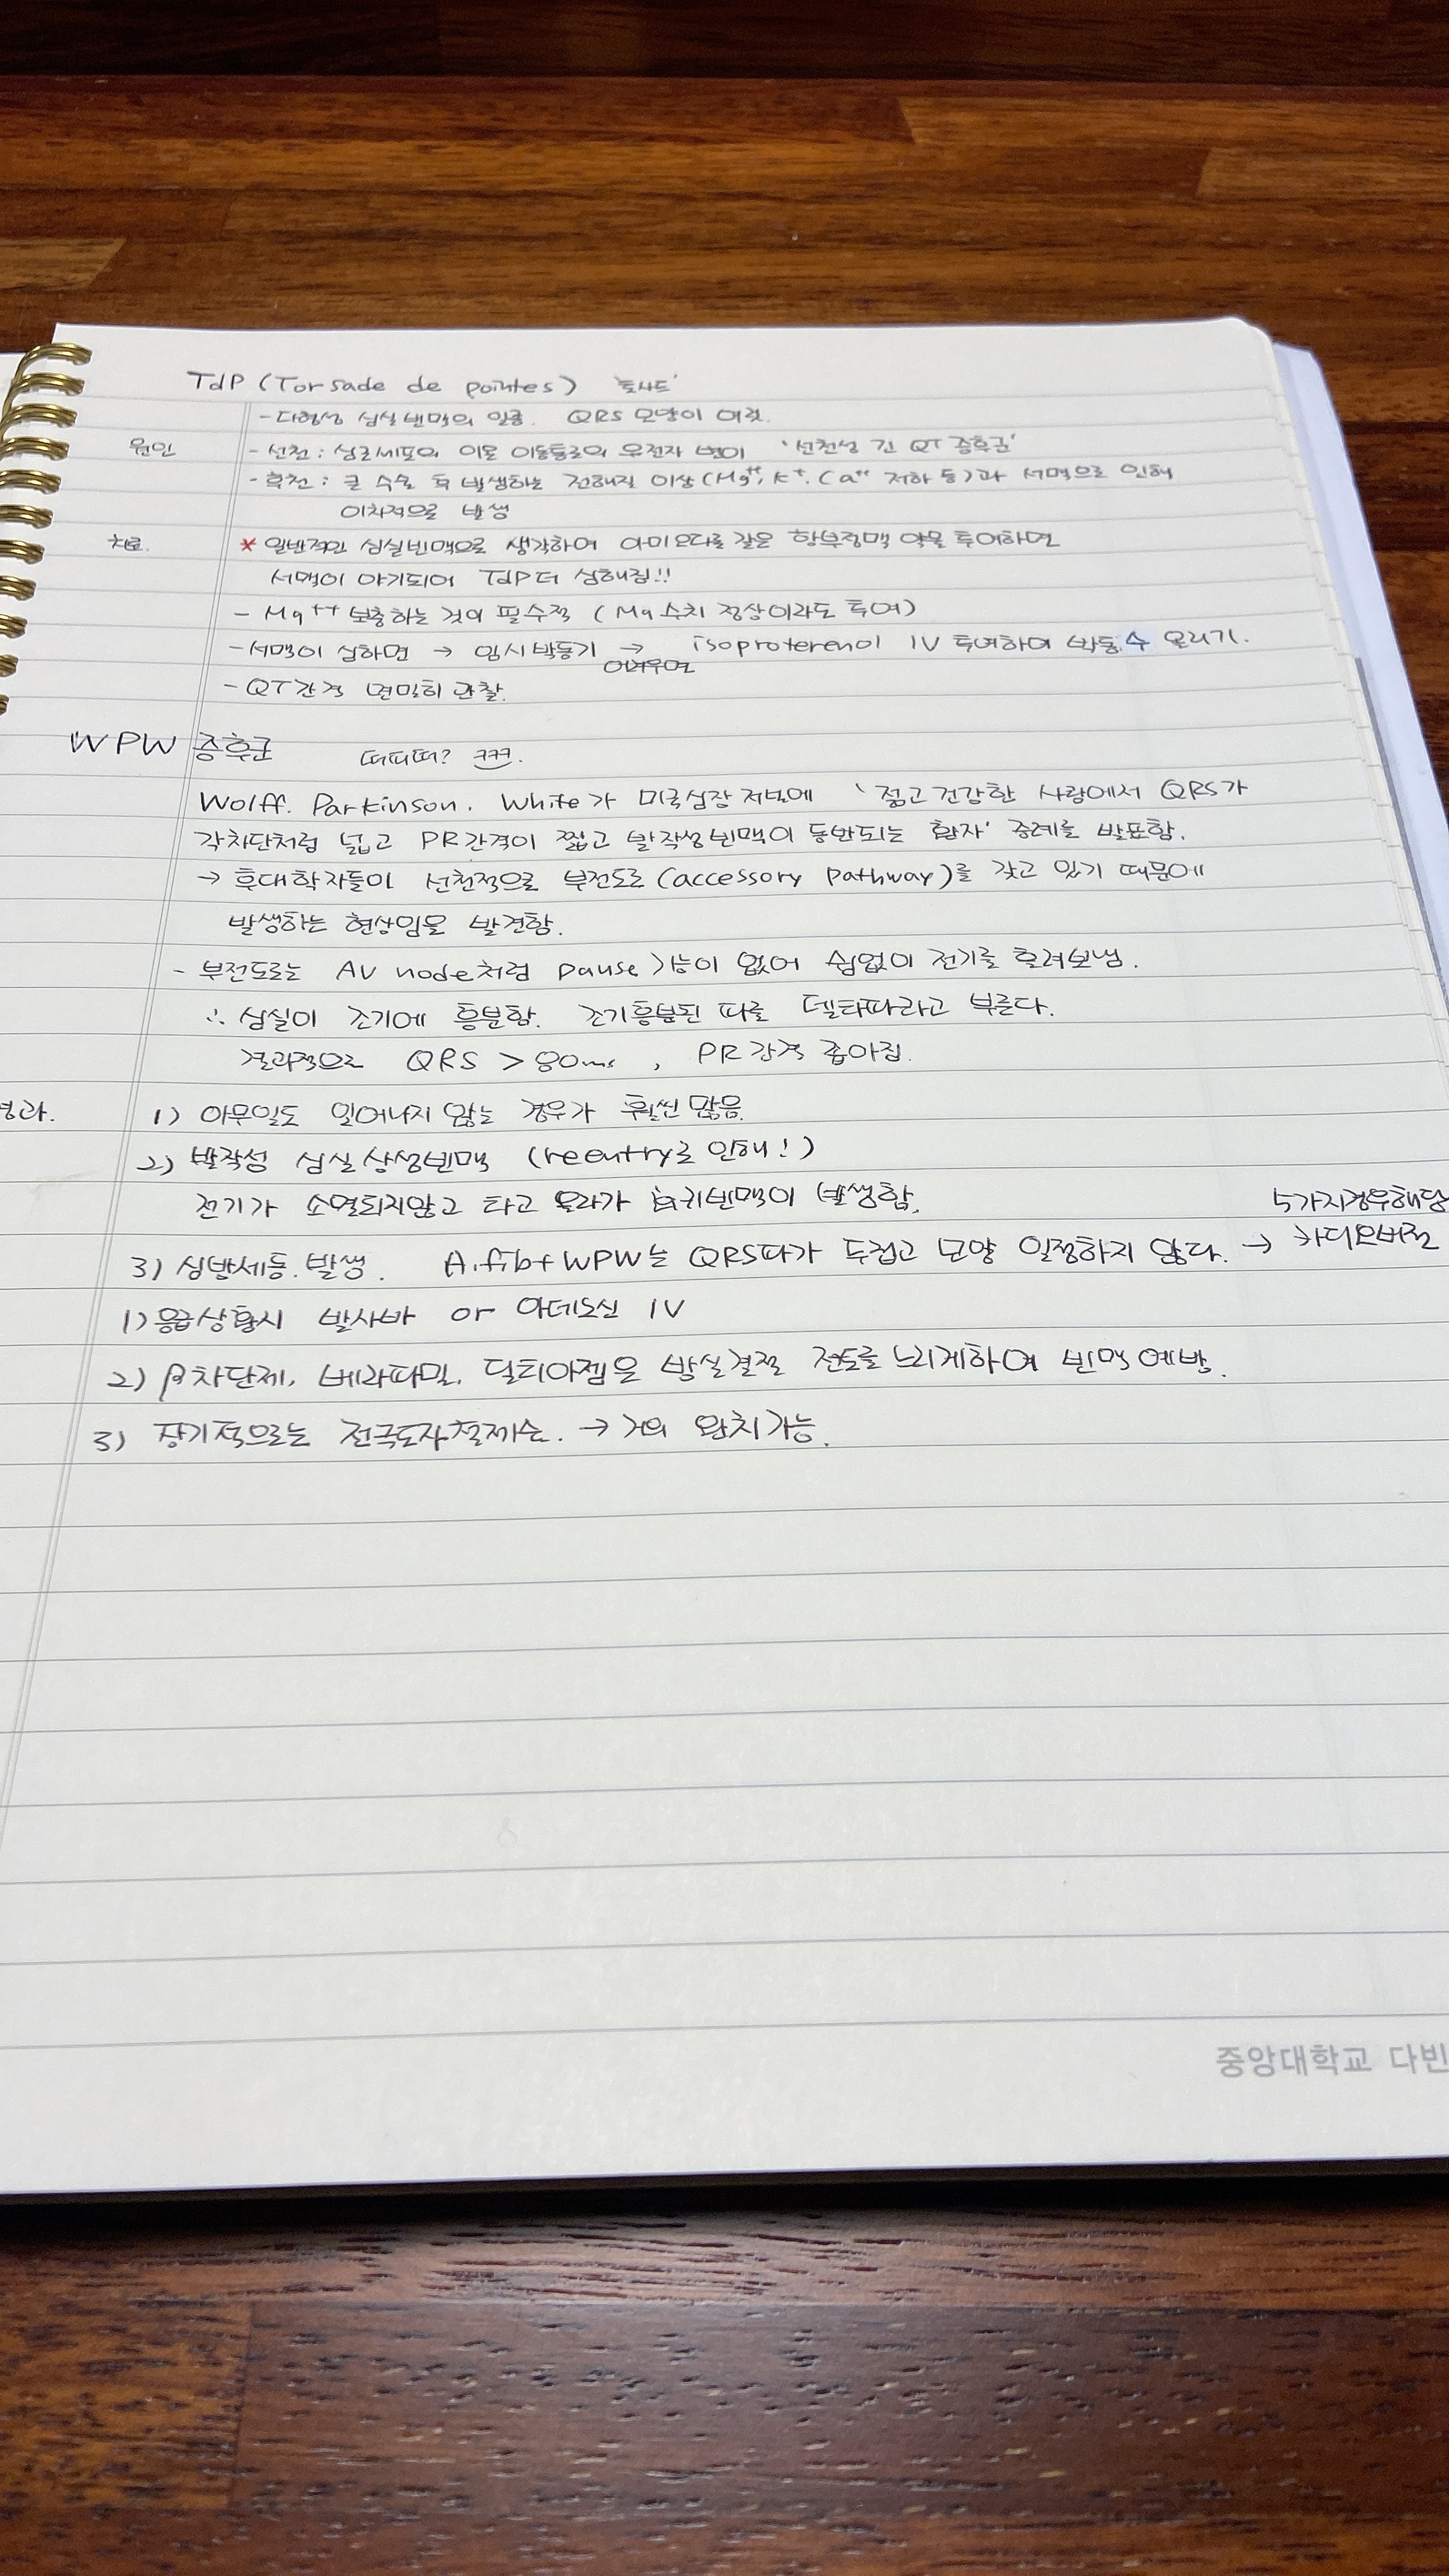 TdP (Torsade de pointes) '토사드'
- 다형성 심실빈맥의 일종. QRS 모양이 여럿.
원인 - 선천 : 심근세포의 이온 이동통로의 유전자 변이 '선천성 긴 QT 증후군'
- 후천 : 큰 수술 후 발생하는 전해질 이상 (Mg⁺⁺, K⁺, Ca⁺⁺ 저하 등)과 서맥으로 인해
이차적으로 발생
치료. * 일반적인 심실빈맥으로 생각하여 아미오다론 같은 항부정맥 약물 투여하면
서맥이 야기되어 TdP 더 심해짐!!
- Mg⁺⁺ 보충하는 것이 필수적 (Mg 수치 정상이라도 투여)
- 서맥이 심하면 → 임시박동기 → isoproterenol IV 투여하여 박동수 올리기.
어려우면
- QT간격 면밀히 관찰.
WPW 증후군 떠띠떠? ㅋㅋㅋ.
Wolff. Parkinson. White가 미국심장저널에 '젊고 건강한 사람에서 QRS가
각차단처럼 넓고 PR간격이 짧고 발작성빈맥이 동반되는 환자' 증례를 발표함.
→ 후대학자들이 선천적으로 부전도로(accessory pathway)를 갖고 있기 때문에
발생하는 현상임을 발견함.
- 부전도로는 AV node처럼 pause 기능이 없어 쉼없이 전기를 흘려보냄.
∴ 심실이 조기에 흥분함. 조기흥분된 파를 델타파라고 부른다.
결과적으로 QRS > 80ms , PR간격 좁아짐.
1) 아무일도 일어나지 않는 경우가 훨씬 많음.
2) 발작성 심실상성빈맥 (reentry로 인해!)
전기가 소멸되지않고 타고 올라가 회귀빈맥이 발생함.
5가지경우해당
3) 심방세동. 발생. A.fib+WPW는 QRS파가 두껍고 모양 일정하지 않다. → 카디오버전
1) 응급상황시 발사바 or 아데노신 IV
2) β차단제, 베라파밀, 딜티아젬은 방실결절 전도를 느리게하여 빈맥 예방.
3) 장기적으로는 전극도자절제술. → 거의 완치가능.
중앙대학교 다빈